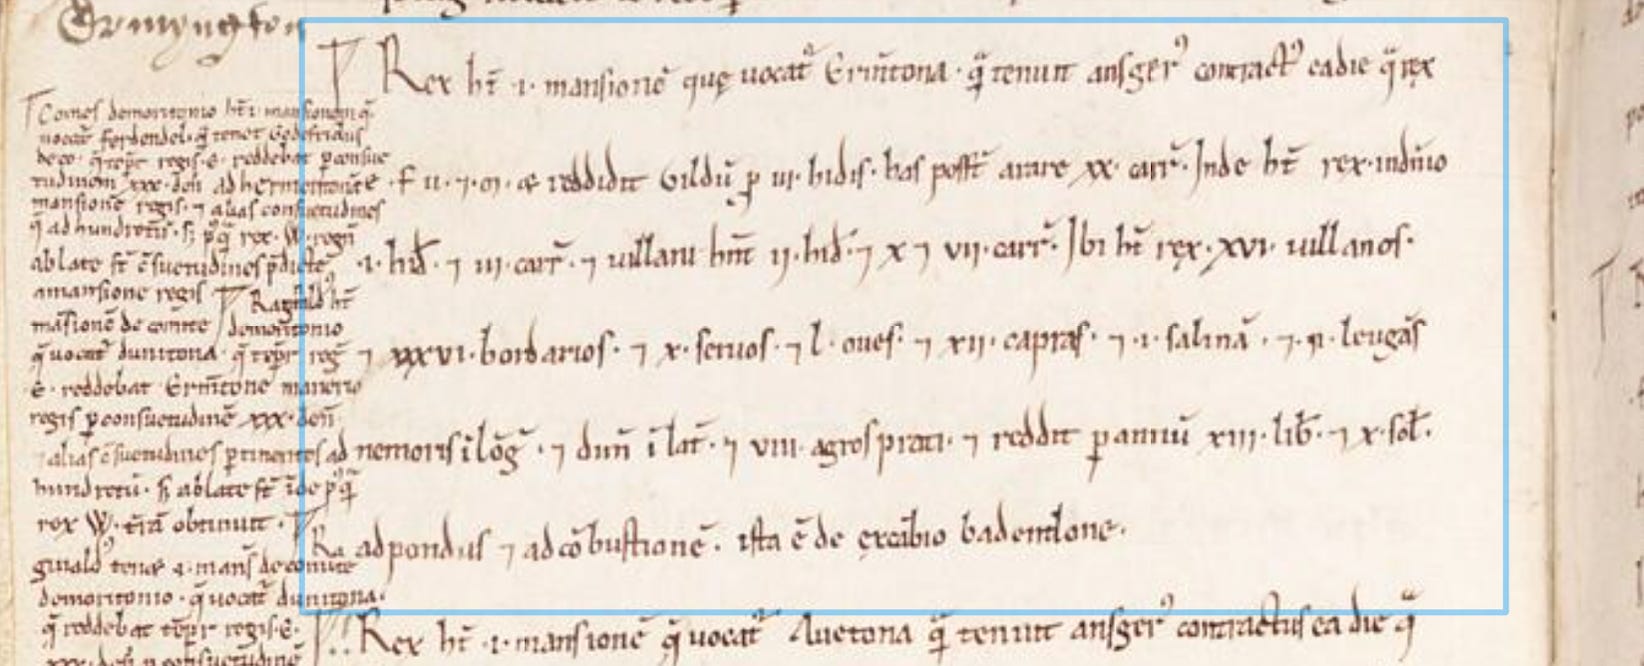 Ermyngton
Comes demoritonio ht̄ ·i· mansionem q̄
uocat᷑ ferdendel · q̄ tenet Godefridus
de eo · q̄ tēpr̄ regis · e · reddebat ꝑ consue
tudinem xxx · deñ ad hermentone
mansionē regis · ⁊ alias consuetudines
q̄ ad hundretū · ſꝫ p᷒q̄ rex · W · regñ
ablate st̄ c̄suetudines p̄dicte
a mansione regis Raginald᷒ ht̄
māsionē de comite demoritonio
q̄ uocat᷑ dunitona · q̄ tēpr̄ reg̃
·E· reddebat Erm̄tone manerio
regis ꝑ consuetudinē xxx · deñ
⁊ alias c̄suetudines ꝑtinentes ad
hundretū · ſꝫ ablate st̄ īde p᷒q̄
rex W · t̄rā obtinuit · Ra
guald᷒ tenet ·i· mans̄ de comite
demoritonio · q̄ uocat᷑ dunitona ·
q̄ reddebat tēpr̄ regis · E ·
Rex ht̄ ·i· mansionē quę uocat᷑ Erm̄tona · q̄ tenuit ansger᷒ contract᷒ ea die q̄ rex
·E· f · u · ⁊ · m · et reddidit Gildū ꝑ iii · hidis · has poss̄t arare xx · carr̄ · Inde ht̄ rex · in dn̄io
·i· hid̄ · ⁊ iii · carr̄ · ⁊ uillani hn̄t ii · hid̄ · ⁊ x ⁊ vii · carr̄ · Ibi ht̄ rex · xvi · uillanos ·
⁊ xxxvi · bordarios · ⁊ x · seruos · ⁊ l · oues · ⁊ xii · capras · ⁊ ·i· salinā · ⁊ · ii · leugas
nemoris ī lōg̃ · ⁊ dim̄ ī lat̄ · ⁊ viii · agros prati · ⁊ reddit ꝑ annū xiii · lib̄ · ⁊ x · sol̄ ·
ad pondus ⁊ ad cōbustionē · ista ē de excābio badentone ·
Rex ht̄ ·i· mansionē q̄ uocat᷑ Auetona q̄ tenuit ansger᷒ contractus ea die q̄